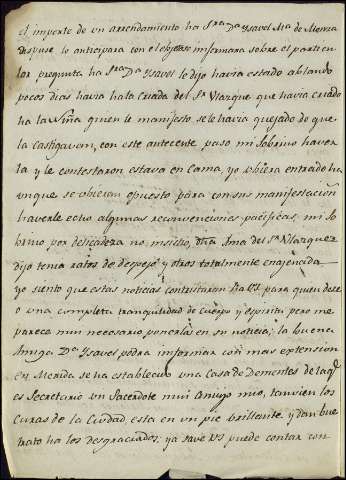 el importe de un arrendamiento ha Sra Da Ysavel Ma de Meinsa
dispuse lo anticipara con el objeto informara sobre el particu
lar pregunta ha Sra Da Ysavel le dijo havia estado ablando
pocos dias havia hala Criada del Sr Vlazque que havia criado
ha la Niña quien le manifesto se le havia quejado de que
la Castigavan, con este antecente paso mi Sobrino haver
la y le contestaron estava en Cama, yo ubiera entrado ha
unque se ubieran opuesto para con sus manifestacion
haverle echo algunas reconvenciones pacificas, mi So
brino por delicadeza no insistio, dha Ama del Sr Vlazquez
dijo tenia ratos de despejo y otros totalmente enagenada
yo siento que estas noticias contristaran ha VS. para quien dese
o una completa tranquilidad de cuerpo y espiritu pero me
parece mui necesario ponerlas en su noticia; la buena
Amiga Da Ysavel podra informar con mas extension
en Merida se ha establecido una Casa de Dementes de la q
es Secretario un Sacerdote mui Amigo mio, tanvien los
Curas de la Ciudad, esta en un pie brillante y dan bue
trato ha los desgraciados: ya save VS puede contar con